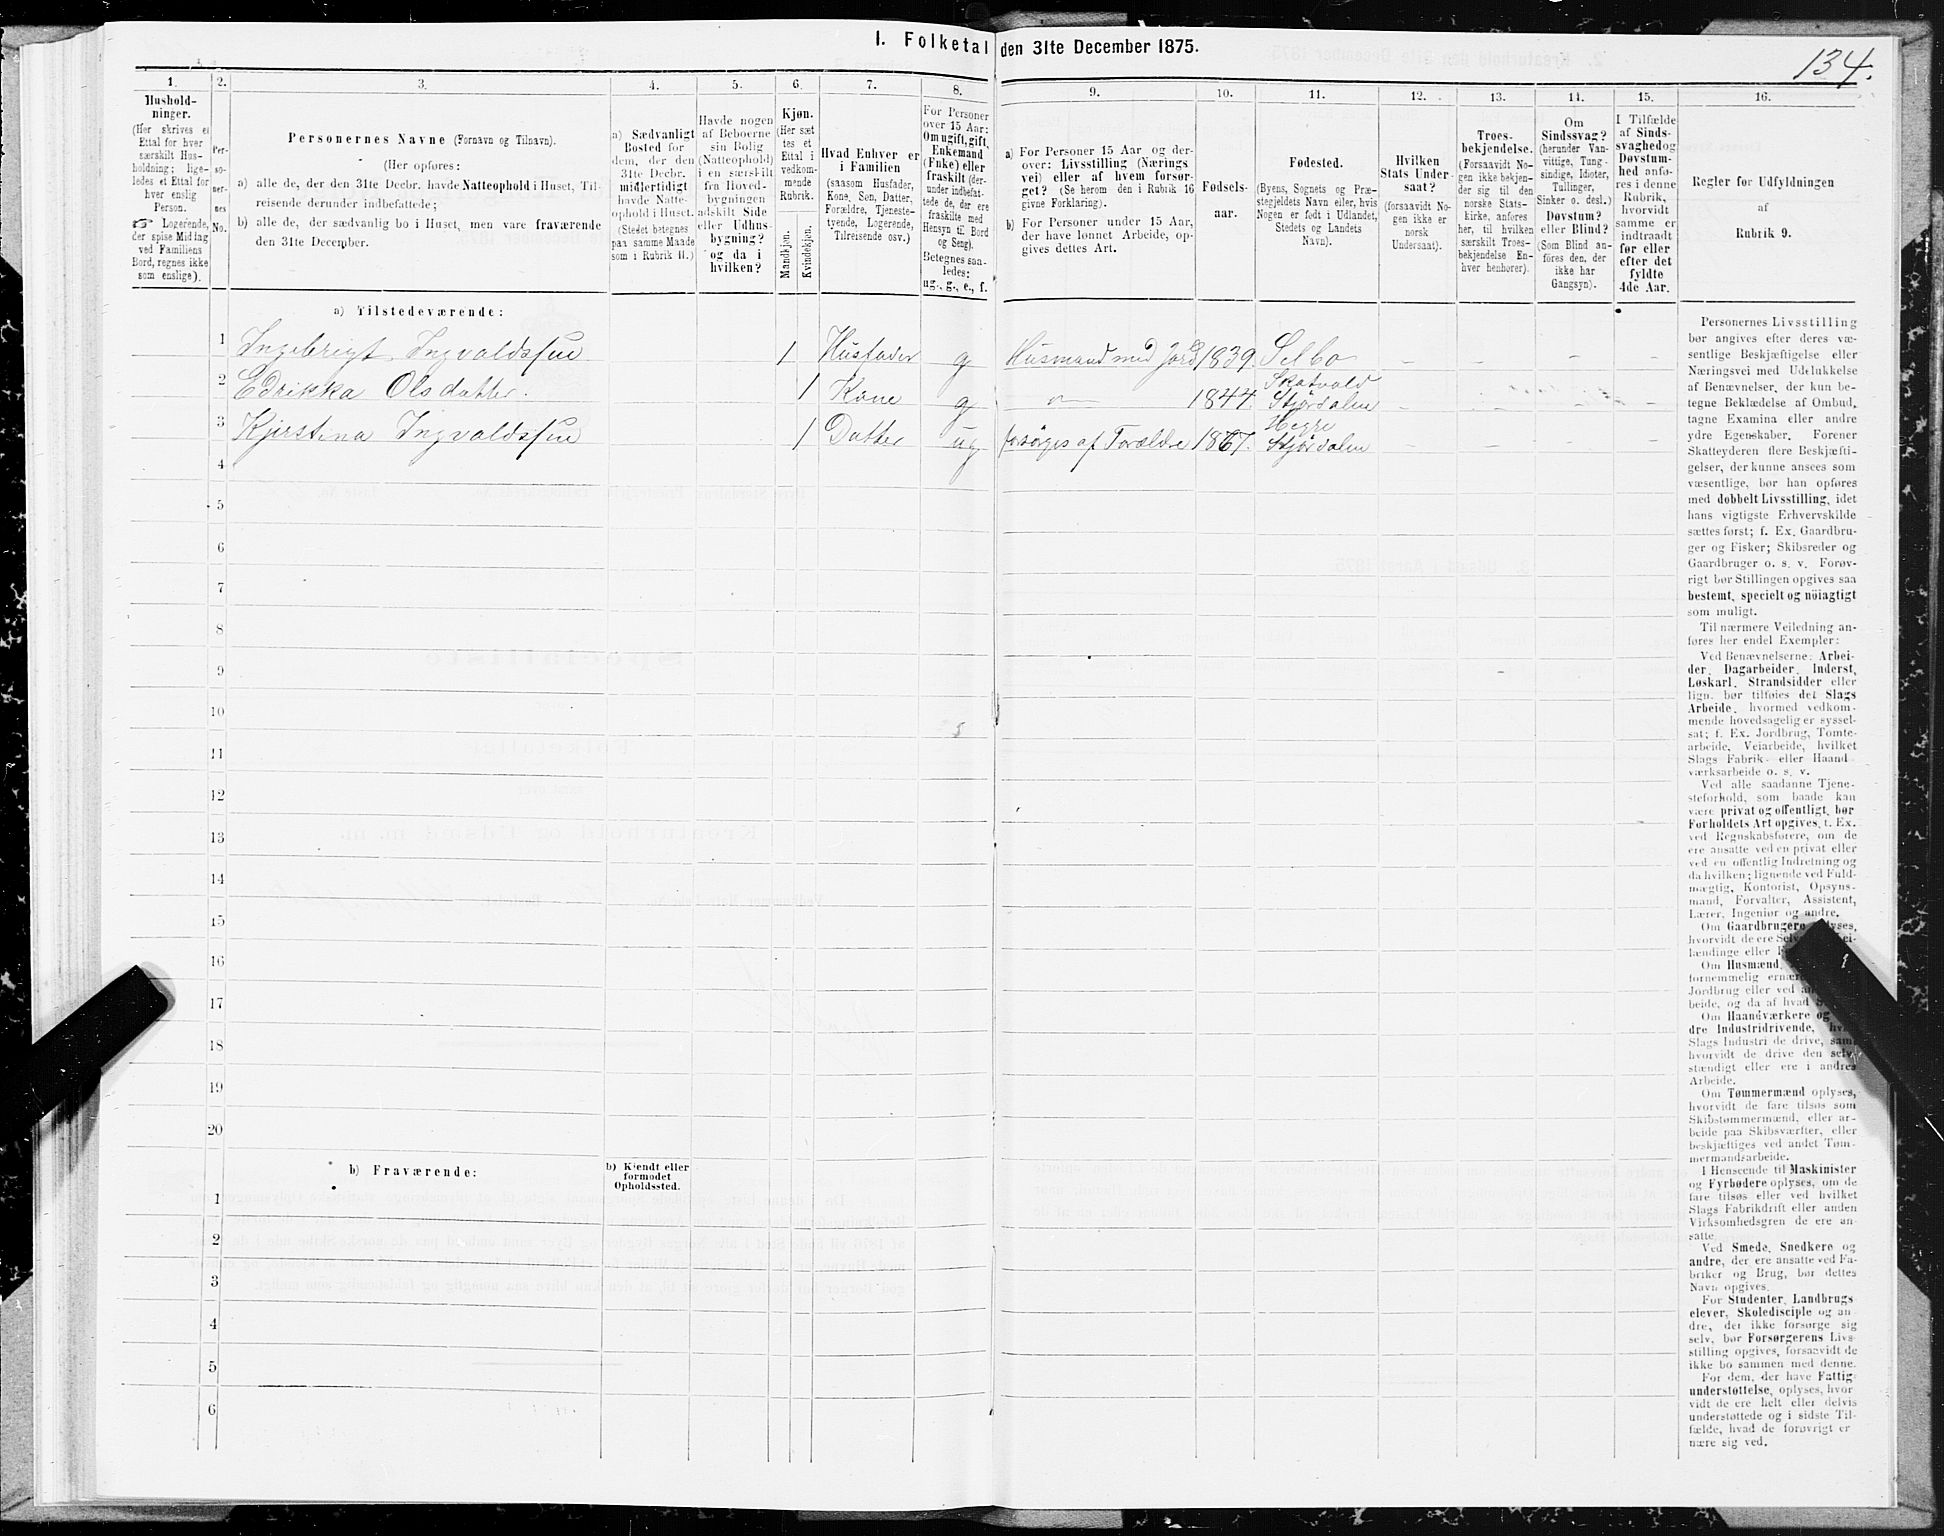 I. Folketal den 31te December 1875.
134.
1.
2.
3.
4.
5.
6.
7.
8.
9.
10.
11.
12.
13.
14.
15.
16.
Hushold-
ninger.
(Her skrives et
Ettal for hver
særskilt Hus-
holdning; lige-
ledes et Ettal for
hver enslig
Person.
☞ Logerende,
der spise Middag
ved Familiens
Bord, regnes ikke
som enslige).
Per-
so-
ner-
nes
No.
Personernes Navne (Fornavn og Tilnavn).
(Her opføres:
a) alle de, der den 31te Decbr. havde Natteophold i Huset, Til-
reisende derunder indbefattede;
b) alle de, der sædvanlig bo i Huset, men vare fraværende
den 31te December.
a) Sædvanligt
Bosted for
dem, der den
31te Decbr.
midlertidigt
havde Natte-
ophold i Huset.
(Stedet betegnes
paa samme Maade
som i Rubrik 11.)
Havde nogen
af Beboerne
sin Bolig
(Natteophold)
i en særskilt
fra Hoved-
bygningen
adskilt Side
eller Udhus-
bygning?
og da i
hvilken?
Kjøn.
(Her sæt
tes et
Ettal i
vedkom-
mende
Rubrik.
Mandkjøn.
Kvindekjøn.
Hvad Enhver er
i Familien
(saasom Husfader,
Kone, Søn, Datter,
Forældre, Tjeneste-
tyende, Logerende,
Tilreisende osv.)
For Personer
over 15 Aar:
Om ugift, gift,
Enkemand
(Enke) eller
fraskilt (der-
under indbefat-
tede de, der ere
fraskilte med
Hensyn til Bord
og Seng).
Betegnes saa-
ledes:
ug., g., e., f.
a) For Personer 15 Aar og der-
over: Livsstilling (Nærings
vei) eller af hvem forsør-
get? (Se herom den i Rubrik 16
givne Forklaring).
b) For Personer under 15 Aar,
der have lønnet Arbeide, op-
gives dettes Art.
Fødsels-
aar.
Fødested.
(Byens, Sognets og Præ-
stegjeldets Navn eller, hvis
Nogen er født i Udlandet,
Stedets og Landets
Navn).
Hvilken
Stats Under-
saat?
(forsaavidt No-
gen ikke er
norsk
Undersaat).
Troes-
bekjendelse.
(Forsaavidt No-
gen ikke bekjen-
der sig til den
norske Stats-
kirke, anføres
her, til hvilken
særskilt Troes-
bekjendelse En-
hver henhører).
Om
Sindssvag?
(herunder Van-
vittige, Tung-
sindige, Idioter,
Tullinger,
Sinker o. desl.)
Døvstum?
eller Blind?
(Som Blind an-
føres den, der
ikke har
Gangsyn).
I Tilfælde
af Sinds-
svaghed og
Døvstum-
hed anfø-
res i denne
Rubrik,
hvorvidt
samme er
indtraadt
før eller
efter det
fyldte
4de Aar.
Regler for Udfyldningen
af
Rubrik 9.
a) Tilstedeværende:
1 Ingebrigt Ingvaldssen 1 Husfader g Husmand med Jord 1839. Selbo - - - -
2 Edrikka Olsdatter. 1 Kone g 1844. Skatvald Stjørdalen
3 Kjerstina Ingvaldssen 1 Datter ug forsørges af Forældre 1867. Hegre Stjørdalen - - - -
4
5
6
7
8
9
10
11
12
13
14
15
16
17
18
19
20
b) Fraværende:
b) Kjendt eller
formodet
Opholdssted.
1
2
3
4
5
6
Personernes Livsstilling
bør angives efter deres væ-
sentlige Beskjæftigelse eller
Næringsvei med Udelukkelse
af Benævnelser, der kun be-
tegne Beklædelse af Ombud,
tagne Examina eller andre
ydre Egenskaber. Forener
Skatteyderen flere Beskjæfti-
gelser, der kunne ansees som
væsentlige, bør han opføres
med dobbelt Livsstilling, idet
hans vigtigste Erhvervskilde
sættes først; f. Ex. Gaardbru-
ger og Fisker; Skibsreder og
Gaardbruger o. s. v. Forøv-
rigt bør Stillingen opgives saa
bestemt, specielt og nöiagtigt
som muligt.
Til nærmere Veiledning an-
føres her endel Exempler:
Ved Benævnelserne: Arbei-
der, Dagarbeider, Inderst,
Løskarl, Strandsidder eller
lign. bør tilføies det Slags
Arbeide, hvormed vedkom-
mende hovedsagelig er syssel-
sat; f. Ex. Jordbrug, Tomte-
arbeide, Veiarbeide, hvilket
Slags Fabrik- eller Haand-
værksarbeide o. s. v.
Ved alle saadanne Tjene-
steforhold, som baade kan
være privat og offentligt, bør
Forholdets Art opgives, t. Ex.
ved Regnskabsførere, om de
ere ansatte ved en privat eller
ved en offentlig Indretning og
da hvilken; lignende ved Fuld-
mægtig, Kontorist, Opsyns-
mand, Forvalter, Assistent,
Lærer, Ingeniør og andre.
Om Gaardbrugere oplyses,
hvorvidt de ere
lændinge eller
Om Husmænd,
fornemmelig
Jordbrug eller ved
beide, og da af hvad
Om Haandværkere og
dre Industridrivende,
Slags Industri de drive, samt
hvorvidt de drive den selv-
stændigt eller ere i andres
Arbeide.
Om Tømmermænd oplyses,
hvorvidt de fare tilsøs som
Skibstømmermænd, eller ar-
beide paa Skibsværfter, eller
beskjæftiges ved andet Tøm-
mermandsarbeide.
I Henseende til Maskinister
og Fyrbødere oplyses, om de
fare tilsøs eller ved hvilket
Slags Fabrikdrift eller anden
Virksomhedsgren de ere an-
satte.
Ved Smede, Snedkere og
andre, der ere ansatte ved Fa-
briker og Brug, bør dettes
Navn opgives.
For Studenter, Landbrugs
elever, Skoledisciple og an-
dre, der ikke forsørge sig
selv, bør Forsørgerens Livs-
stilling opgives, forsaavidt de
ikke bo sammen med denne.
For dem, der have Fattig-
understøttelse, oplyses, hvor
vidt de ere helt eller delvis
understøttede og i sidste Til-
fælde, hvad de forøvrigt er
nære sig ved.